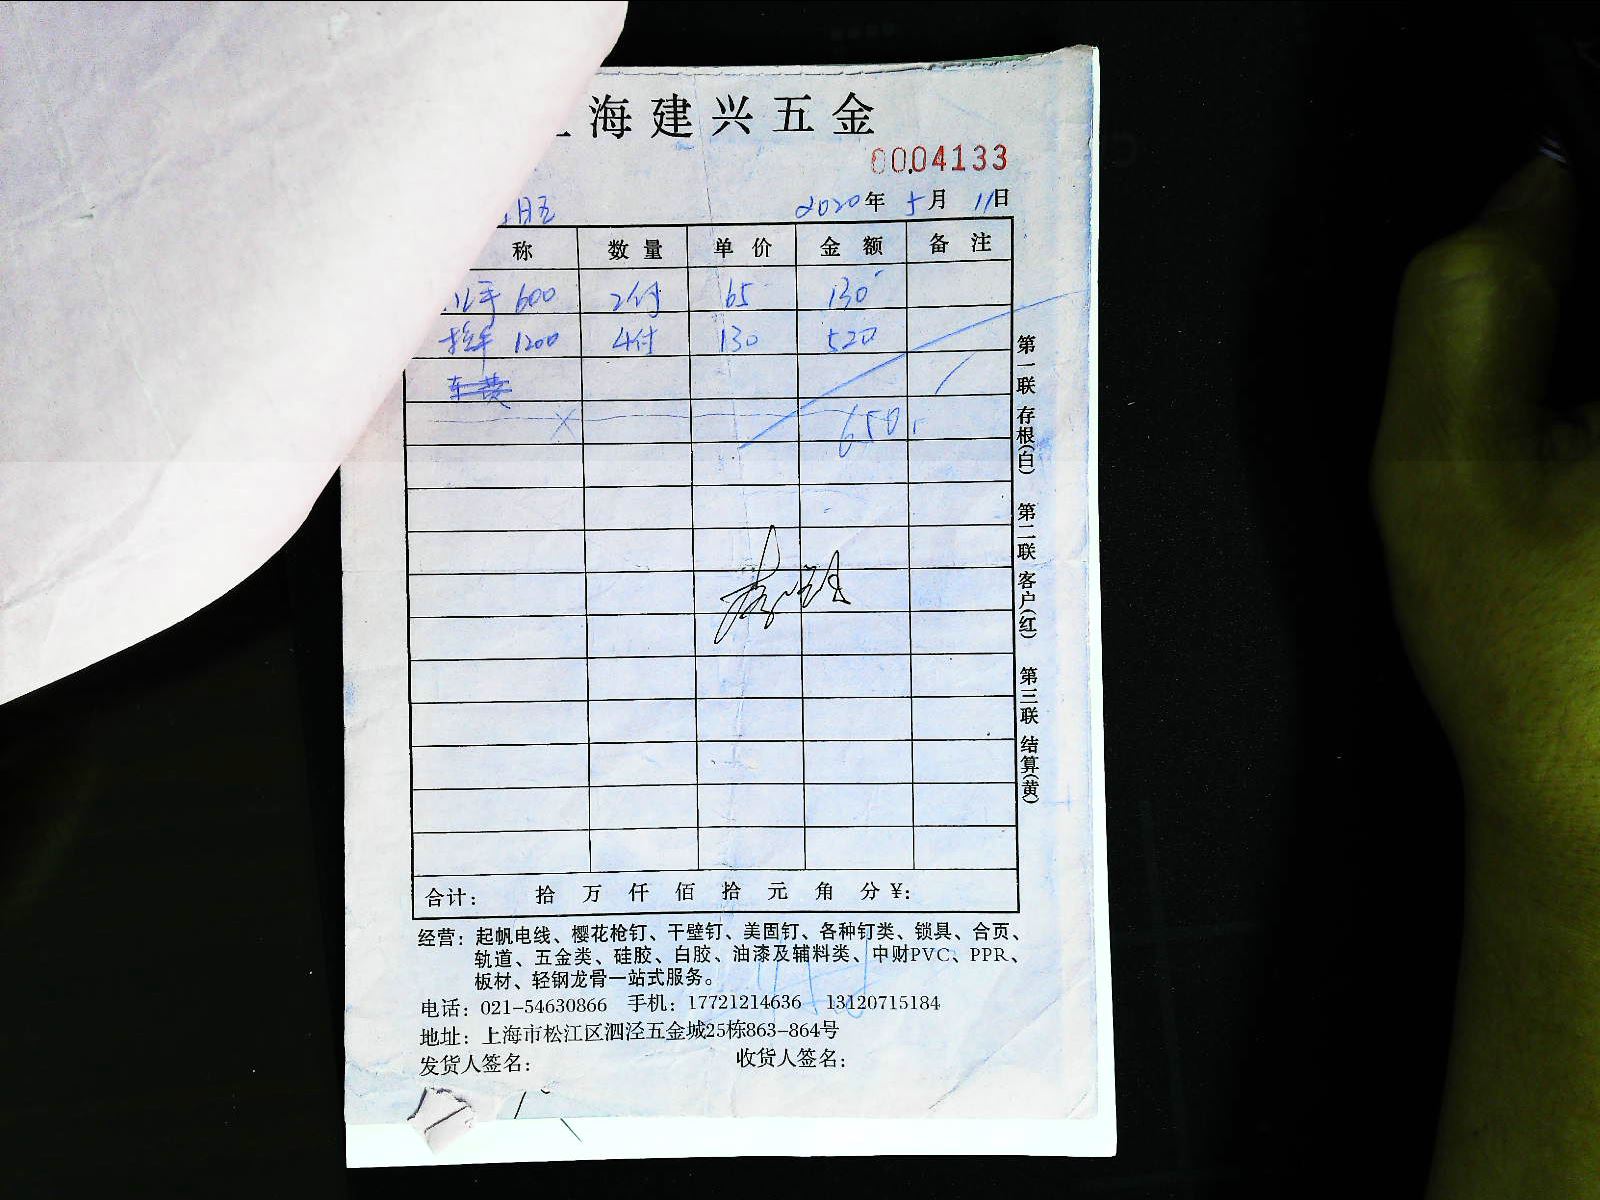 海建兴五金
0004133
2020年 5月 11日
称 数量 单价 金额 备注
手 600 2付 65 130
拉手 1200 4付 130 520
车费
650
第一联 存根(白) 第二联 客户(红) 第三联 结算(黄)
合计： 拾 万 仟 佰 拾 元 角 分 ¥:
经营：起帆电线、樱花枪钉、干壁钉、美固钉、各种钉类、锁具、合页、
轨道、五金类、硅胶、白胶、油漆及辅料类、中财PVC、PPR、
板材、轻钢龙骨一站式服务。
电话：021-54630866 手机：17721214636 13120715184
地址：上海市松江区泗泾五金城25栋863-864号
发货人签名： 收货人签名：